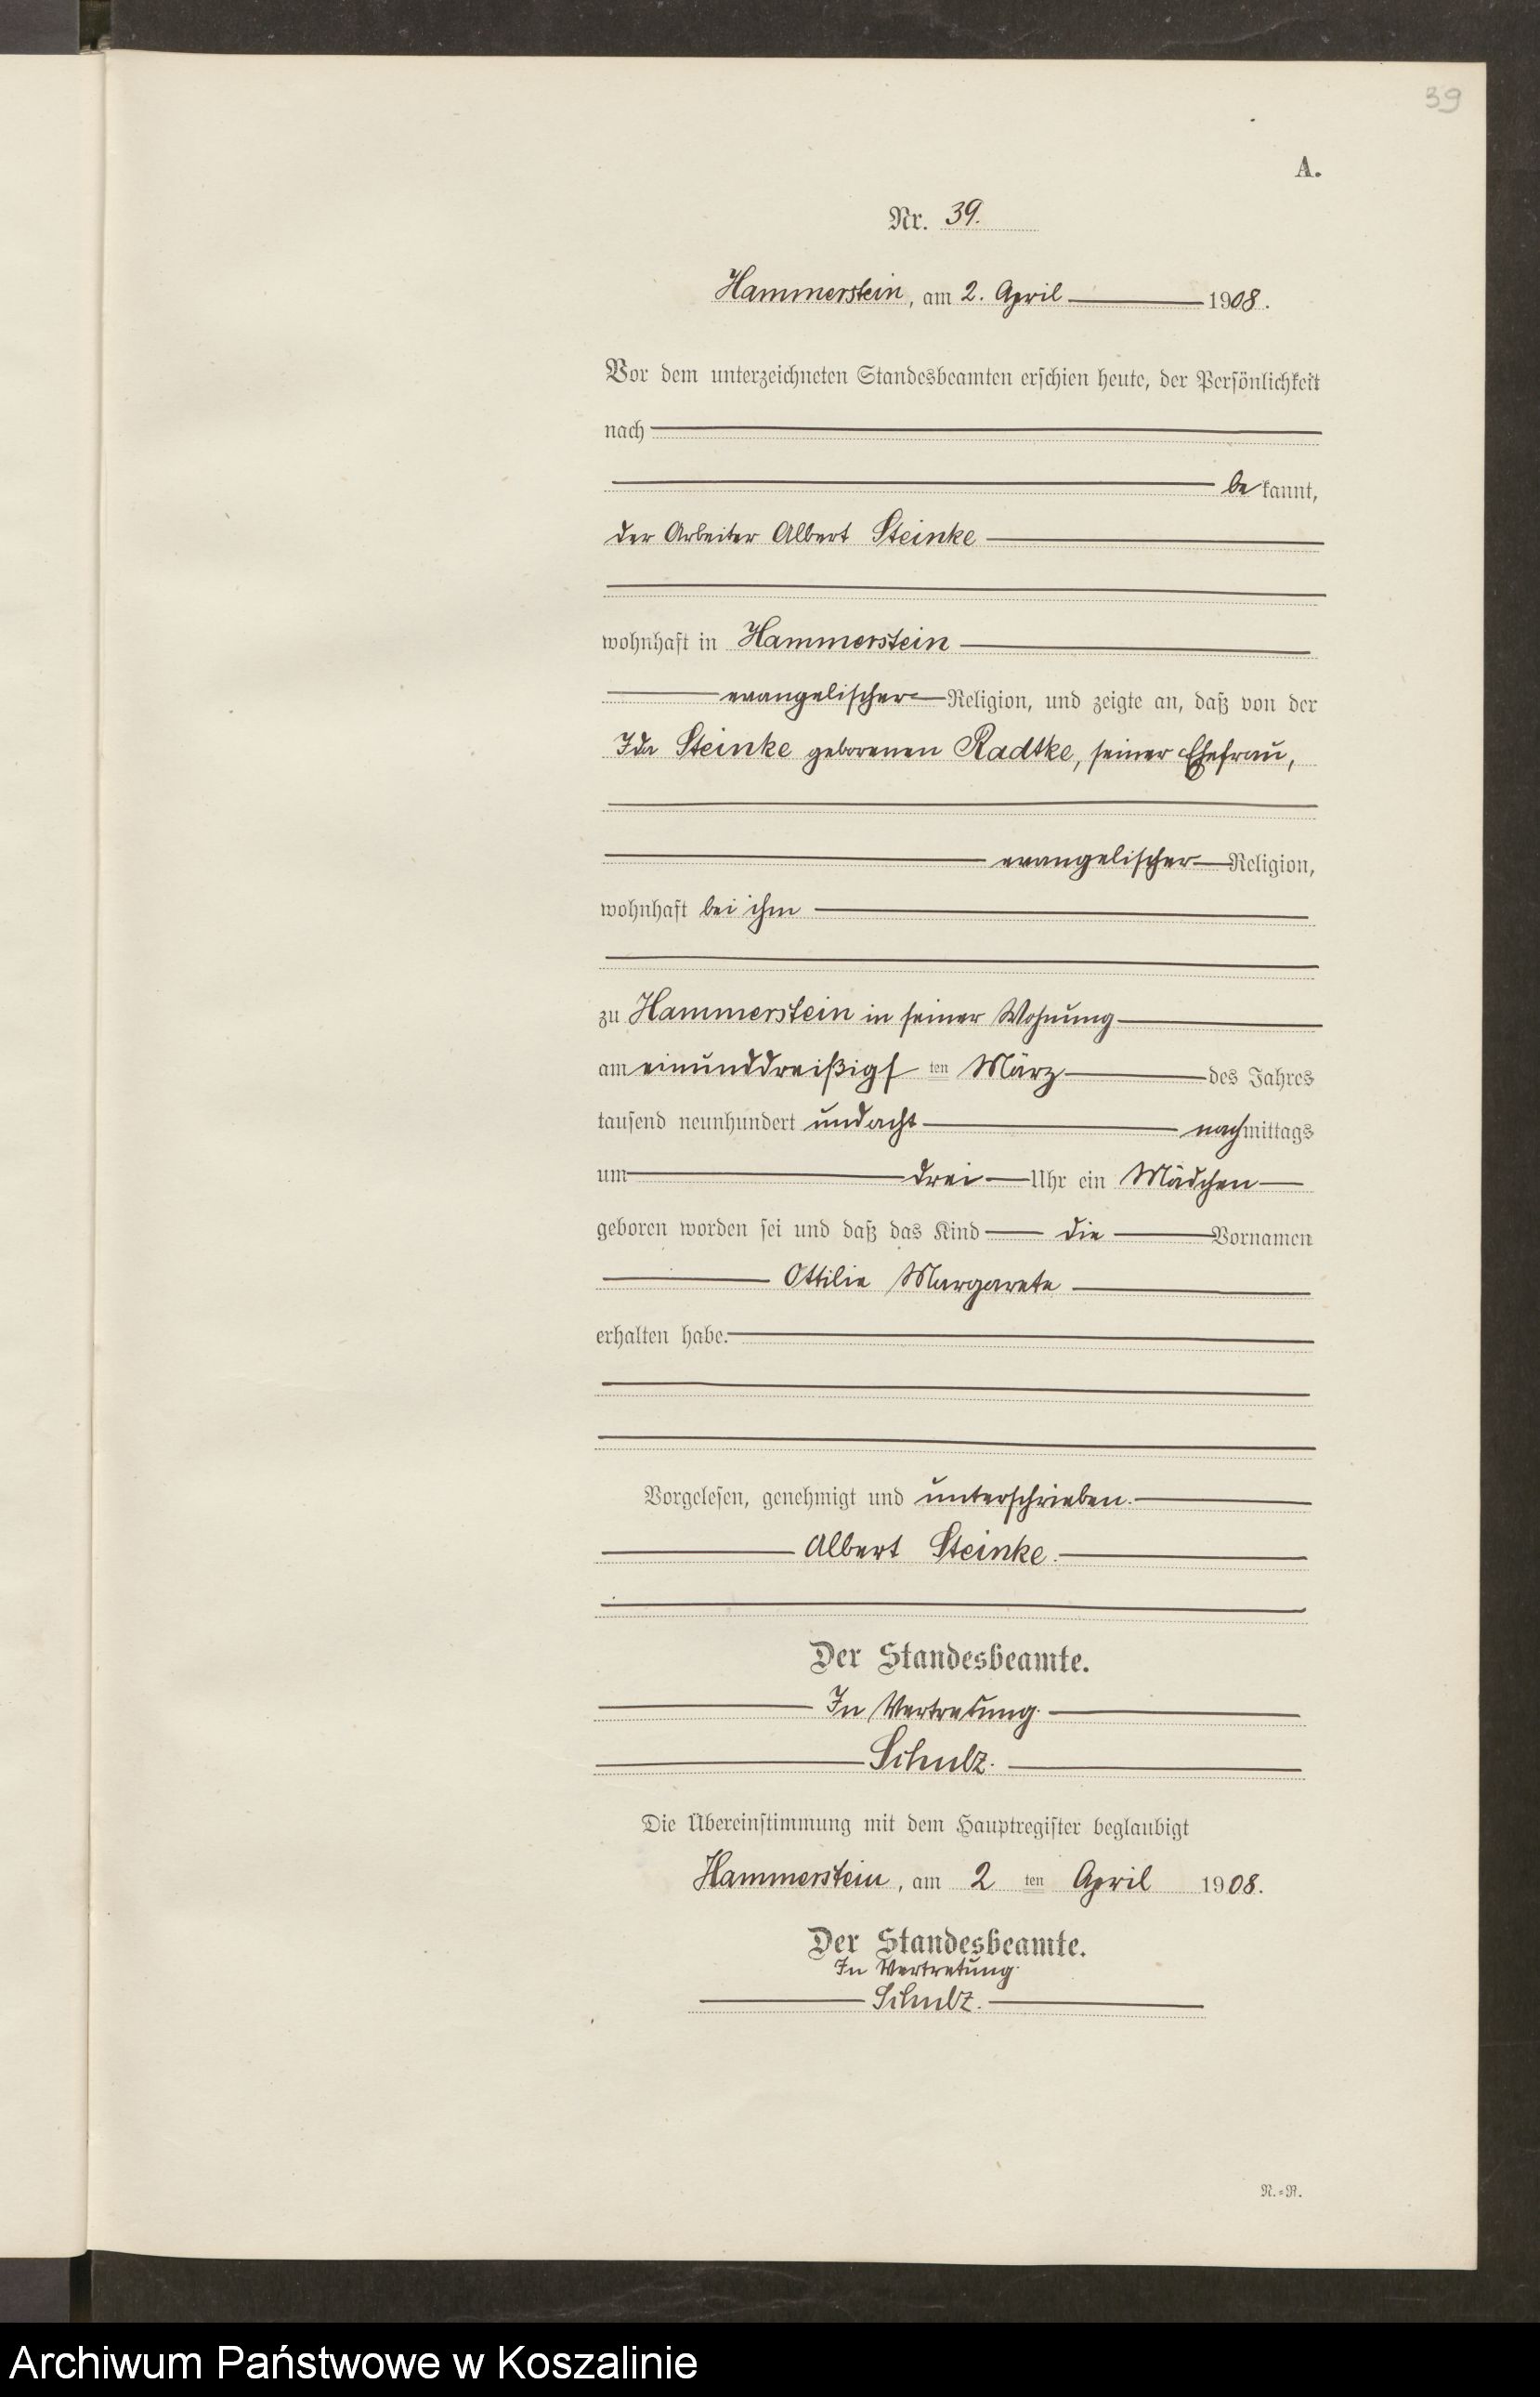 39
A.
Nr. 39.
Hammerstein, am 2. April 1908.
Vor dem unterzeichneten Standesbeamten erschien heute, der Persönlichkeit
nach
be kannt,
der Arbeiter Albert Steinke
wohnhaft in Hammerstein
evangelischer Religion, und zeigte an, daß von der
Ida Steinke geborenen Radtke, seiner Ehefrau,
evangelischer Religion,
wohnhaft bei ihm
zu Hammerstein in seiner Wohnung
am einunddreißigsten März des Jahres
tausend neunhundert undacht nachmittags
um drei Uhr ein Mädchen
geboren worden sei und daß das Kind die Vornamen
Ottilie Margarete
erhalten habe.
Vorgelesen, genehmigt und unterschrieben.
Albert Steinke.
Der Standesbeamte.
In Vertretung.
Schulz.
Die Übereinstimmung mit dem Hauptregister beglaubigt
Hammerstein, am 2 ten April 1908.
Der Standesbeamte.
In Vertretung.
Schulz.
N.=R.
Archiwum Państwowe w Koszalinie